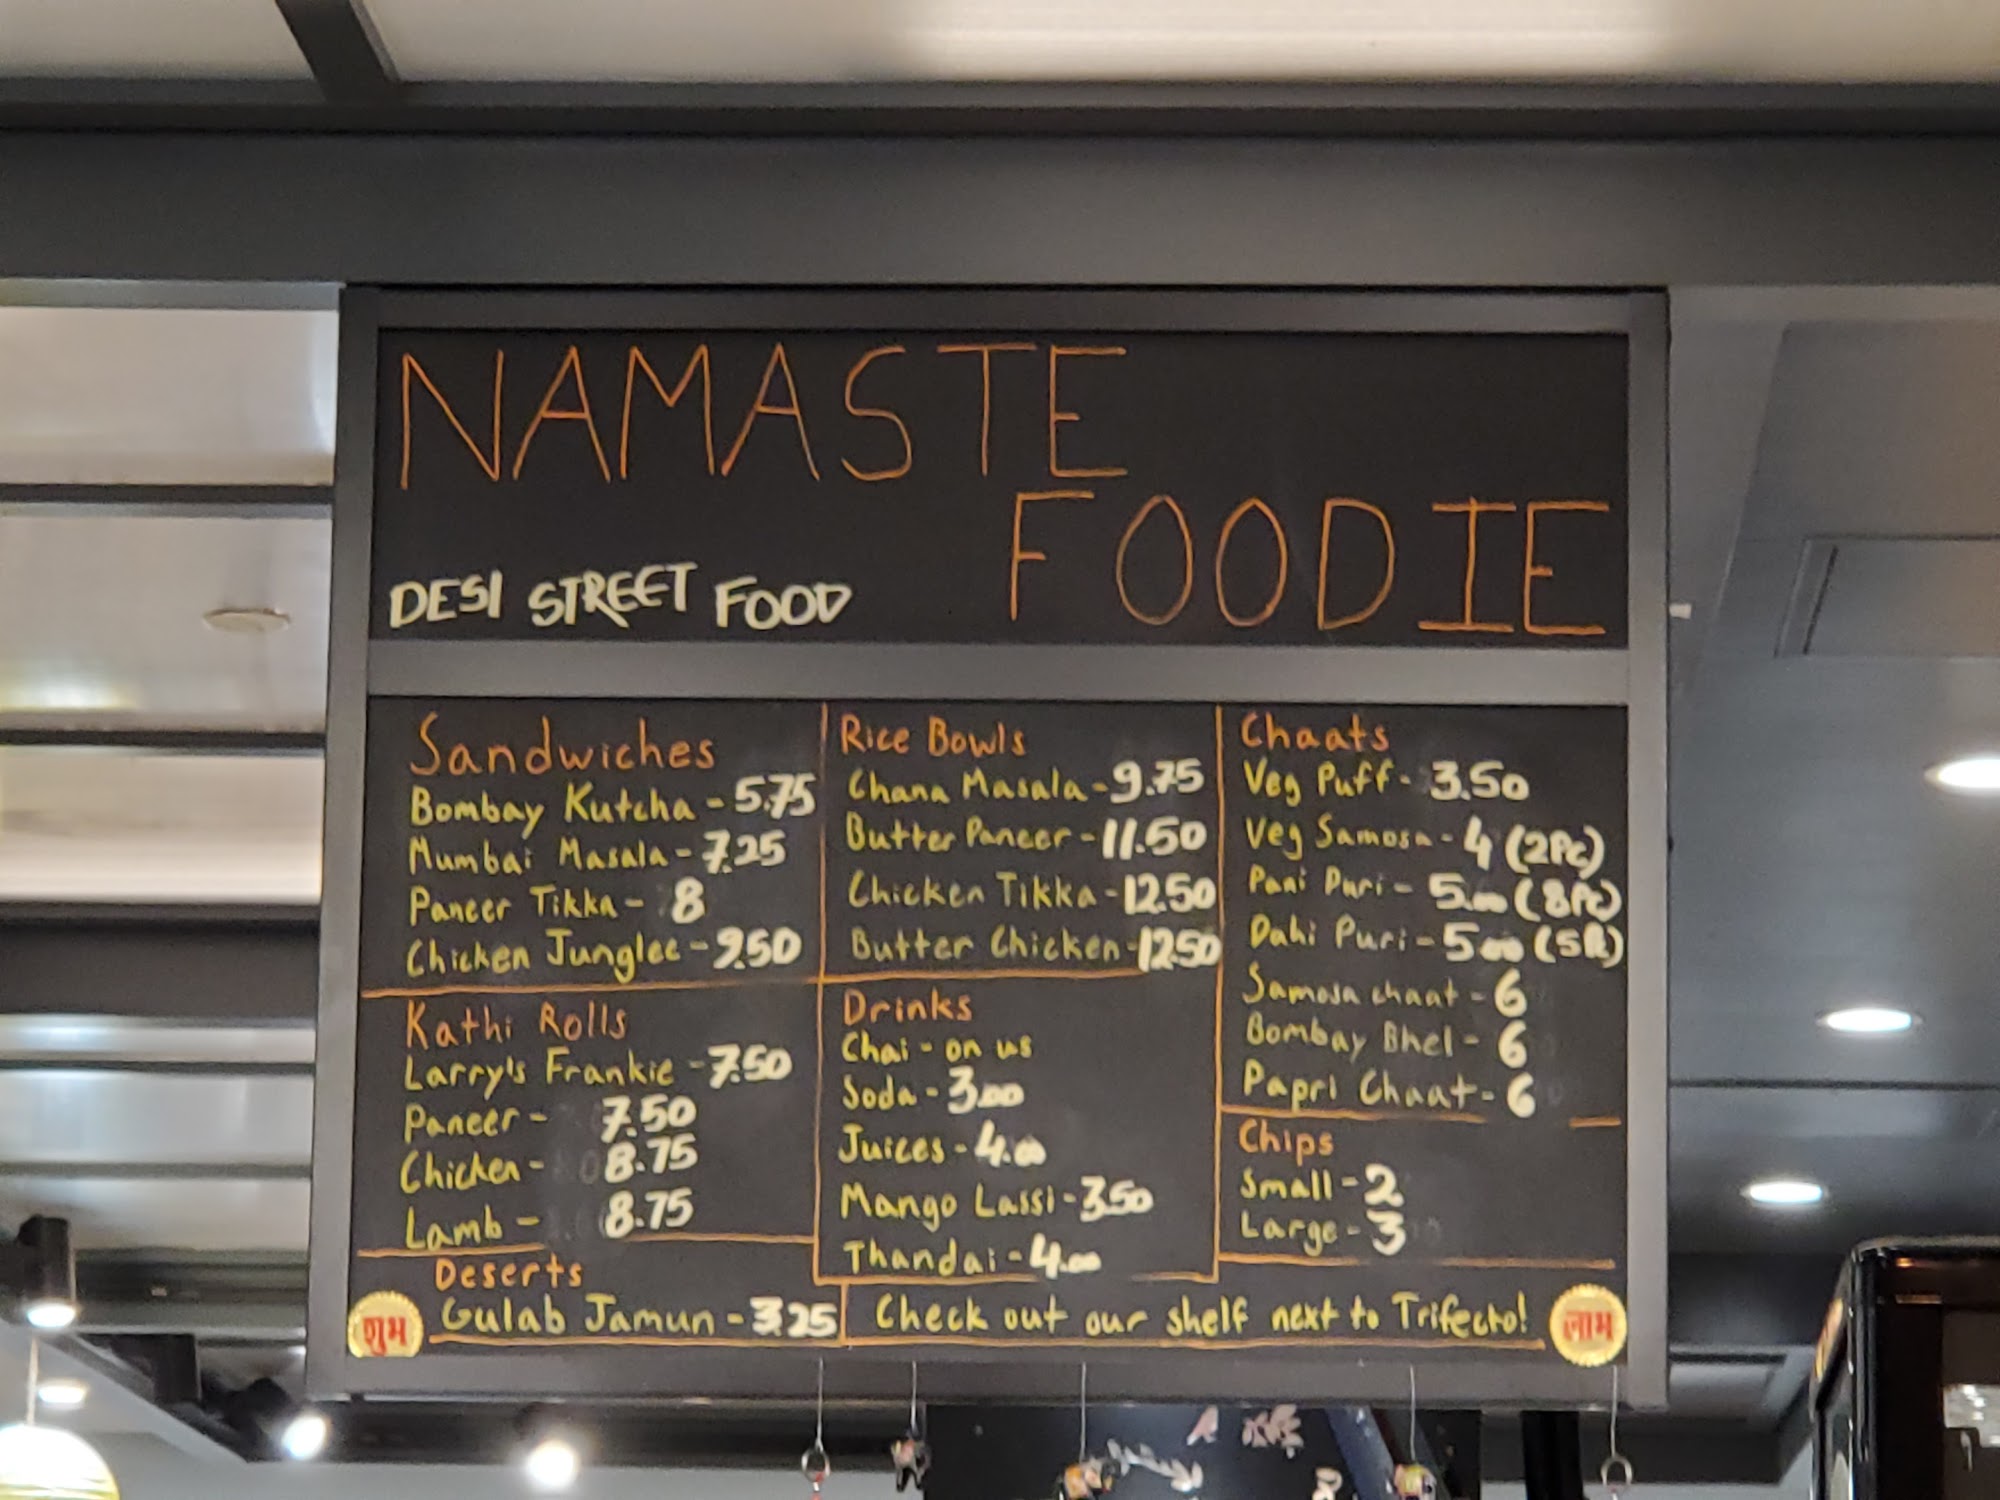 NAMASTE
FOODIE
DESI STREET FOOD
Sandwiches
Bombay Kutcha - 5.75
Mumbai Masala - 7.25
Paneer Tikka - 8
Chicken Junglee - 9.50
Kathi Rolls
Larry's Frankie - 7.50
Paneer - 7.50
Chicken - 8.75
Lamb - 8.75
Deserts
Gulab Jamun - 3.25
Rice Bowls
Chana Masala - 9.75
Butter Paneer - 11.50
Chicken Tikka - 12.50
Butter Chicken - 12.50
Drinks
Chai - on us
Soda - 3.00
Juices - 4.00
Mango Lassi - 3.50
Thandai - 4.00
Chaats
Veg Puff - 3.50
Veg Samosa - 4 (2Pc)
Pani Puri - 5.00 (8Pc)
Dahi Puri - 5.00
Samosa chaat - 6
Bombay Bhel - 6
Papri Chaat - 6
Chips
Small - 2
Large - 3
Check out our shelf next to Trifecto!
शुभ
लाभ